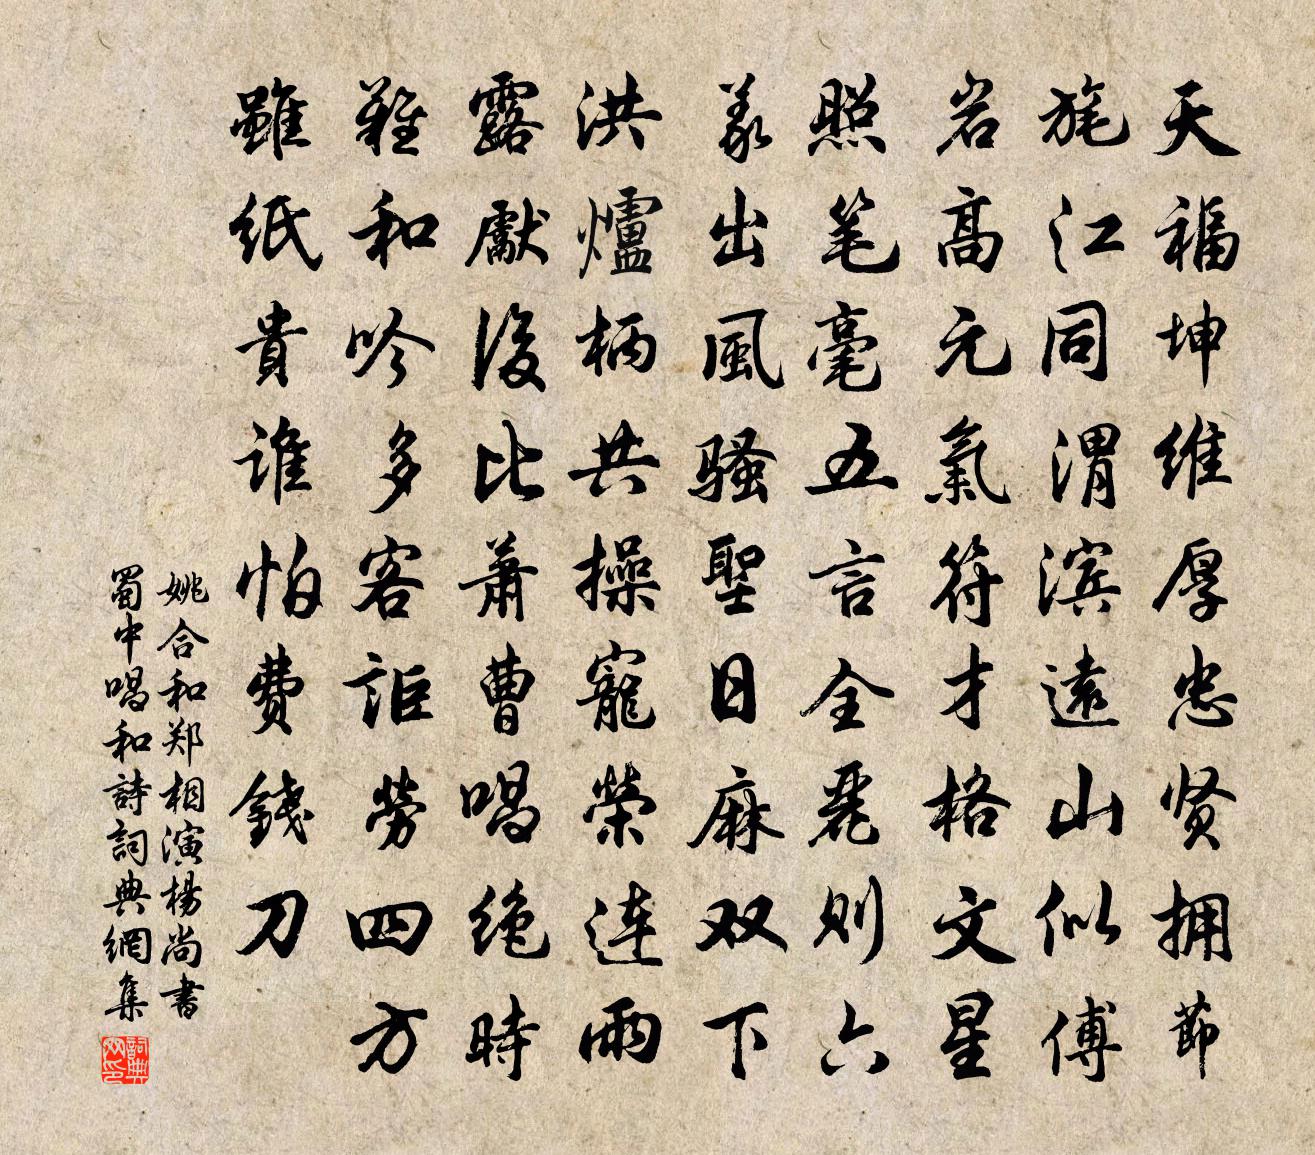 天福坤维厚忠贤拥節
旄江同渭滨遠山似傅
岩高元氣符才格文星
照笔毫五言全麗则六
義出風騷聖日麻双下
洪爐柄共操寵榮连雨
露獻後比蕭曹唱绝時
難和吟多客詎勞四方
雖紙貴誰怕費錢刀
姚合和郑相演楊尚書
蜀中唱和詩詞典網集